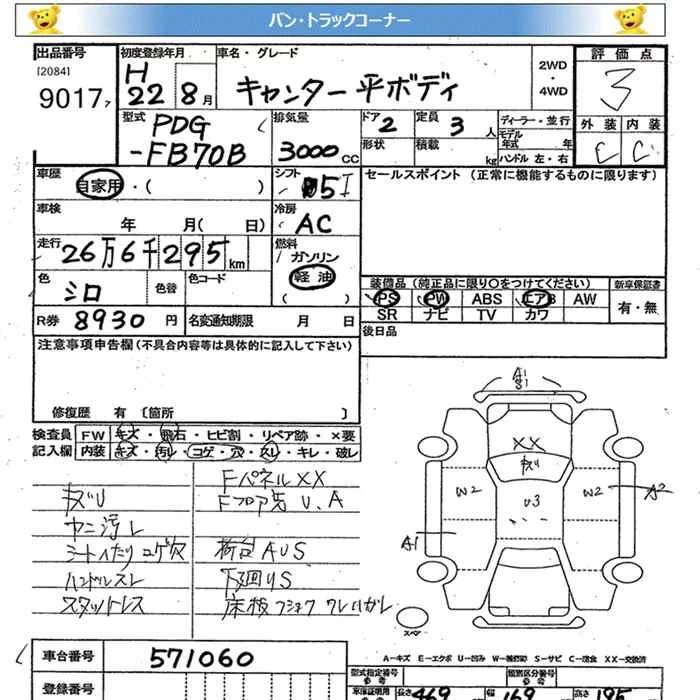 バン・トラックコーナー
出品番号 初度登録年月 車名・グレード 2WD ・ 4WD 評価点
[2084]
9017 7 H 22 8月 キャンター 平ボディ 3
外装 内装
C C
型式 PDG -FB70B 排気量 3000cc ドア 2 定員 3人 ディーラー・並行
形状 積載 kg モデル年式 年
ハンドル 左・右
車歴 自家用・( ) シフト 5 セールスポイント (正常に機能するものに限ります)
車検 年 月( 日) 冷房 AC
走行 26万6千295km 燃料 ガソリン
軽油
( )
色 シロ 色替 色コード
装備品 (純正品に限り○をつけてください) 新車保証書
PS PW ABS エアB AW 有・無
SR ナビ TV カワ
R券 8930円 名変通知期限 月 日 後日品
注意事項申告欄(不具合内容等は具体的に記入して下さい)
修復歴 有 [箇所 ]
検査員 FW キズ・飛石・ヒビ割・リペア跡・×要
記入欄 内装 キズ・汚レ・コゲ・穴・スレ・キレ・破レ
Fパネル XX
キズU Fフロア先 U、A
ヤニ汚レ
シートヘタリ コゲ穴 荷台 AUS
ハンドルスレ 下廻りS
スタッドレス 床板
A1
XX
キズU
W2 U3 W2 A2
A1
スペア
A−キズ E−エクボ U−凹み W−補修跡 S−サビ C−腐食 XX−交換済
車台番号 571060
登録番号
型式指定番号 参考 類別区分番号 参考
車庫証明用 長さ 469 幅 169 高さ 195